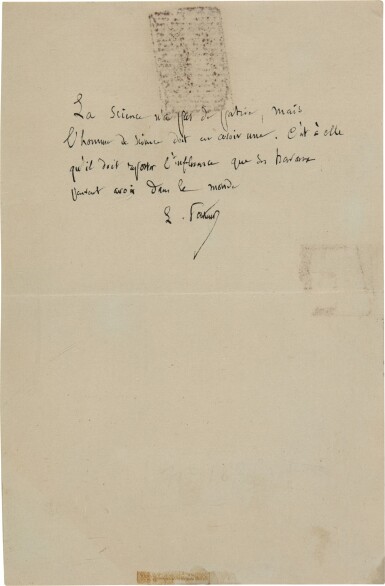 La Science n'a pas de patrie, mais
l'homme de science doit en avoir une. C'est à elle
qu'il doit reporter l'influence que ses travaux
peuvent avoir dans le monde
L. Pasteur